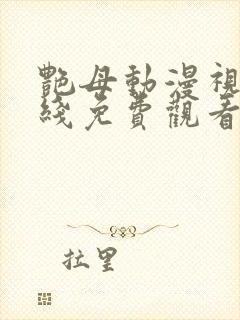 艷母動漫視
綫免費觀看
拉里